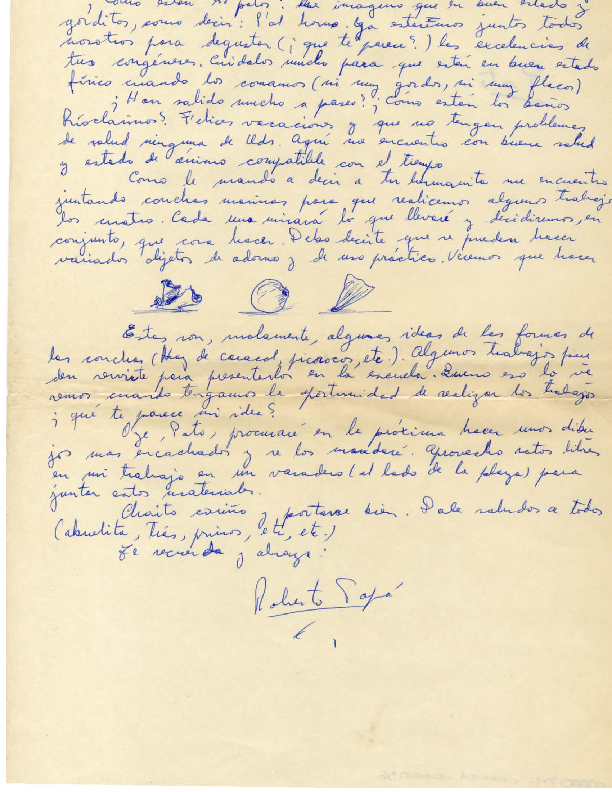 ¿Cómo están los patos? Me imagino que en buen estado y
gorditos, como decir: P'al horno. Ya estaremos juntos todos
nosotros para degustar (¿que te parece?) las excelencias de
tus congéneres. Cuídalos mucho para que estén en buen estado
físico cuando los comamos (ni muy gordos, ni muy flacos)
¿Han salido mucho a paseo? ¿Cómo están los baños
Ríoclarinos? Felices vacaciones y que no tengan problemas
de salud ninguna de Uds. Aquí me encuentro con buena salud
y estado de ánimo compatible con el tiempo
Como le mando a decir a tu hermanita me encuentro
juntando conchas marinas para que realicemos algunos trabajos
los cuatro. Cada una mirará lo que llevaré y decidiremos, en
conjunto, que cosa hacer. Debo decirte que se pueden hacer
variados objetos de adorno y de uso práctico. Veremos que hacer
Estas son, malamente, algunas ideas de las formas de
las conchas (Hay de caracol, picoroco, etc.). Algunos trabajos pue
den servirte para presentarlos en la escuela. Bueno eso lo ve
remos cuando tengamos la oportunidad de realizar los trabajos
¿qué te parece mi idea?
Oye, Pato, procuraré en la próxima hacer unos dibu
jos mas encachados y se los mandaré. Aprovecho ratos libres
en mi trabajo en un varadero (al lado de la playa) para
juntar estos materiales.
Chaito cariño y portarse bien. Dale saludos a todos
(abuelita, tías, primos, etc, etc.)
Te recuerda y abraza:
Roberto Papá